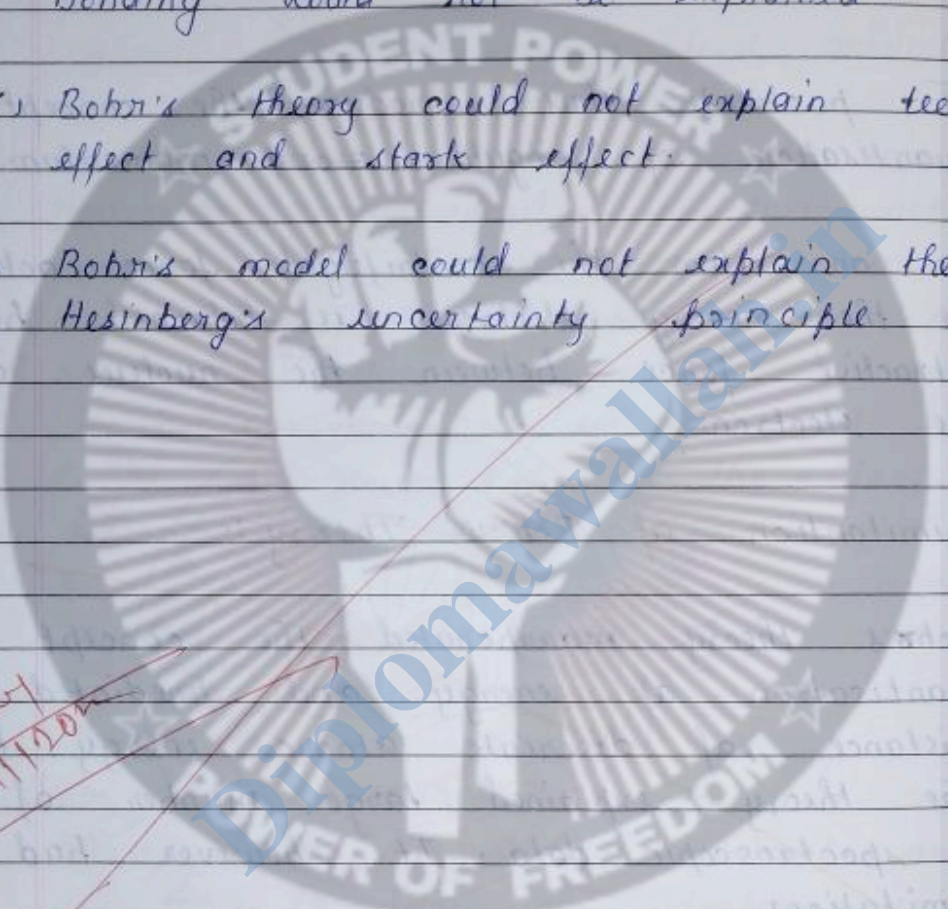 Bohr's theory could not explain tee
effect and stark effect.
Bohr's model could not explain the
Hesinberg's uncertainty principle.
STUDENT POWER
POWER OF FREEDOM
Diplomawallah.in